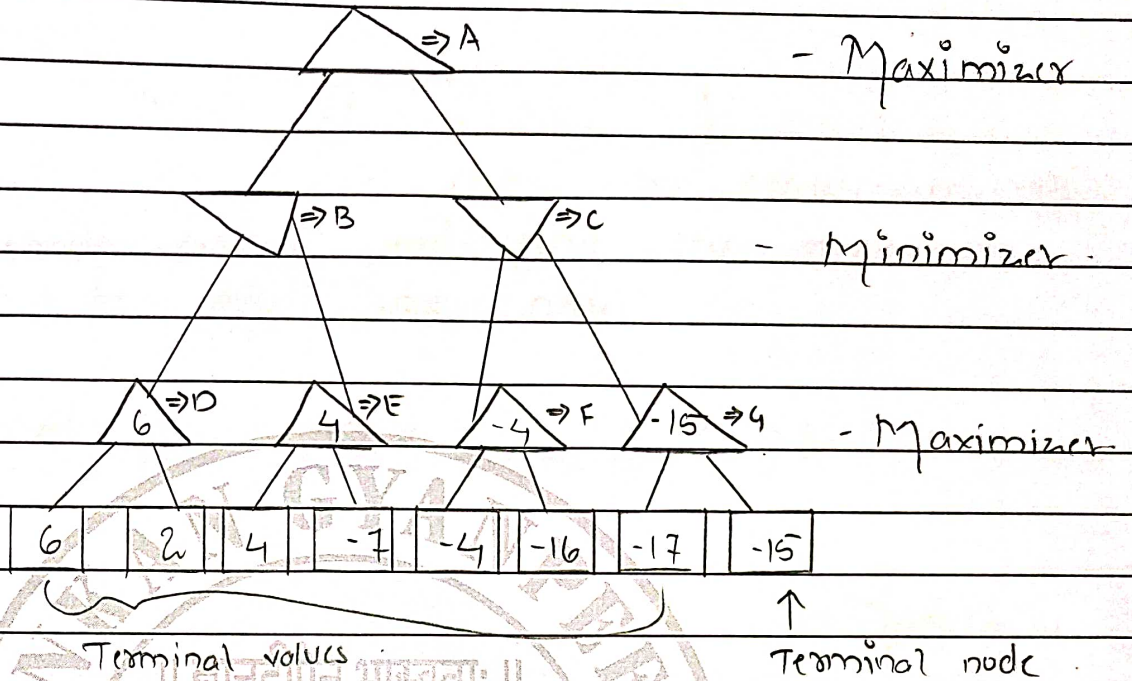 ⇒ A
- Maximizer
⇒ B
⇒ C
- Minimizer.
6 ⇒ D
4 ⇒ E
-4 ⇒ F
-15 ⇒ G
- Maximizer
6 2 4 -7 -4 -16 -17 -15
↑
Terminal values
Terminal node.
GYA